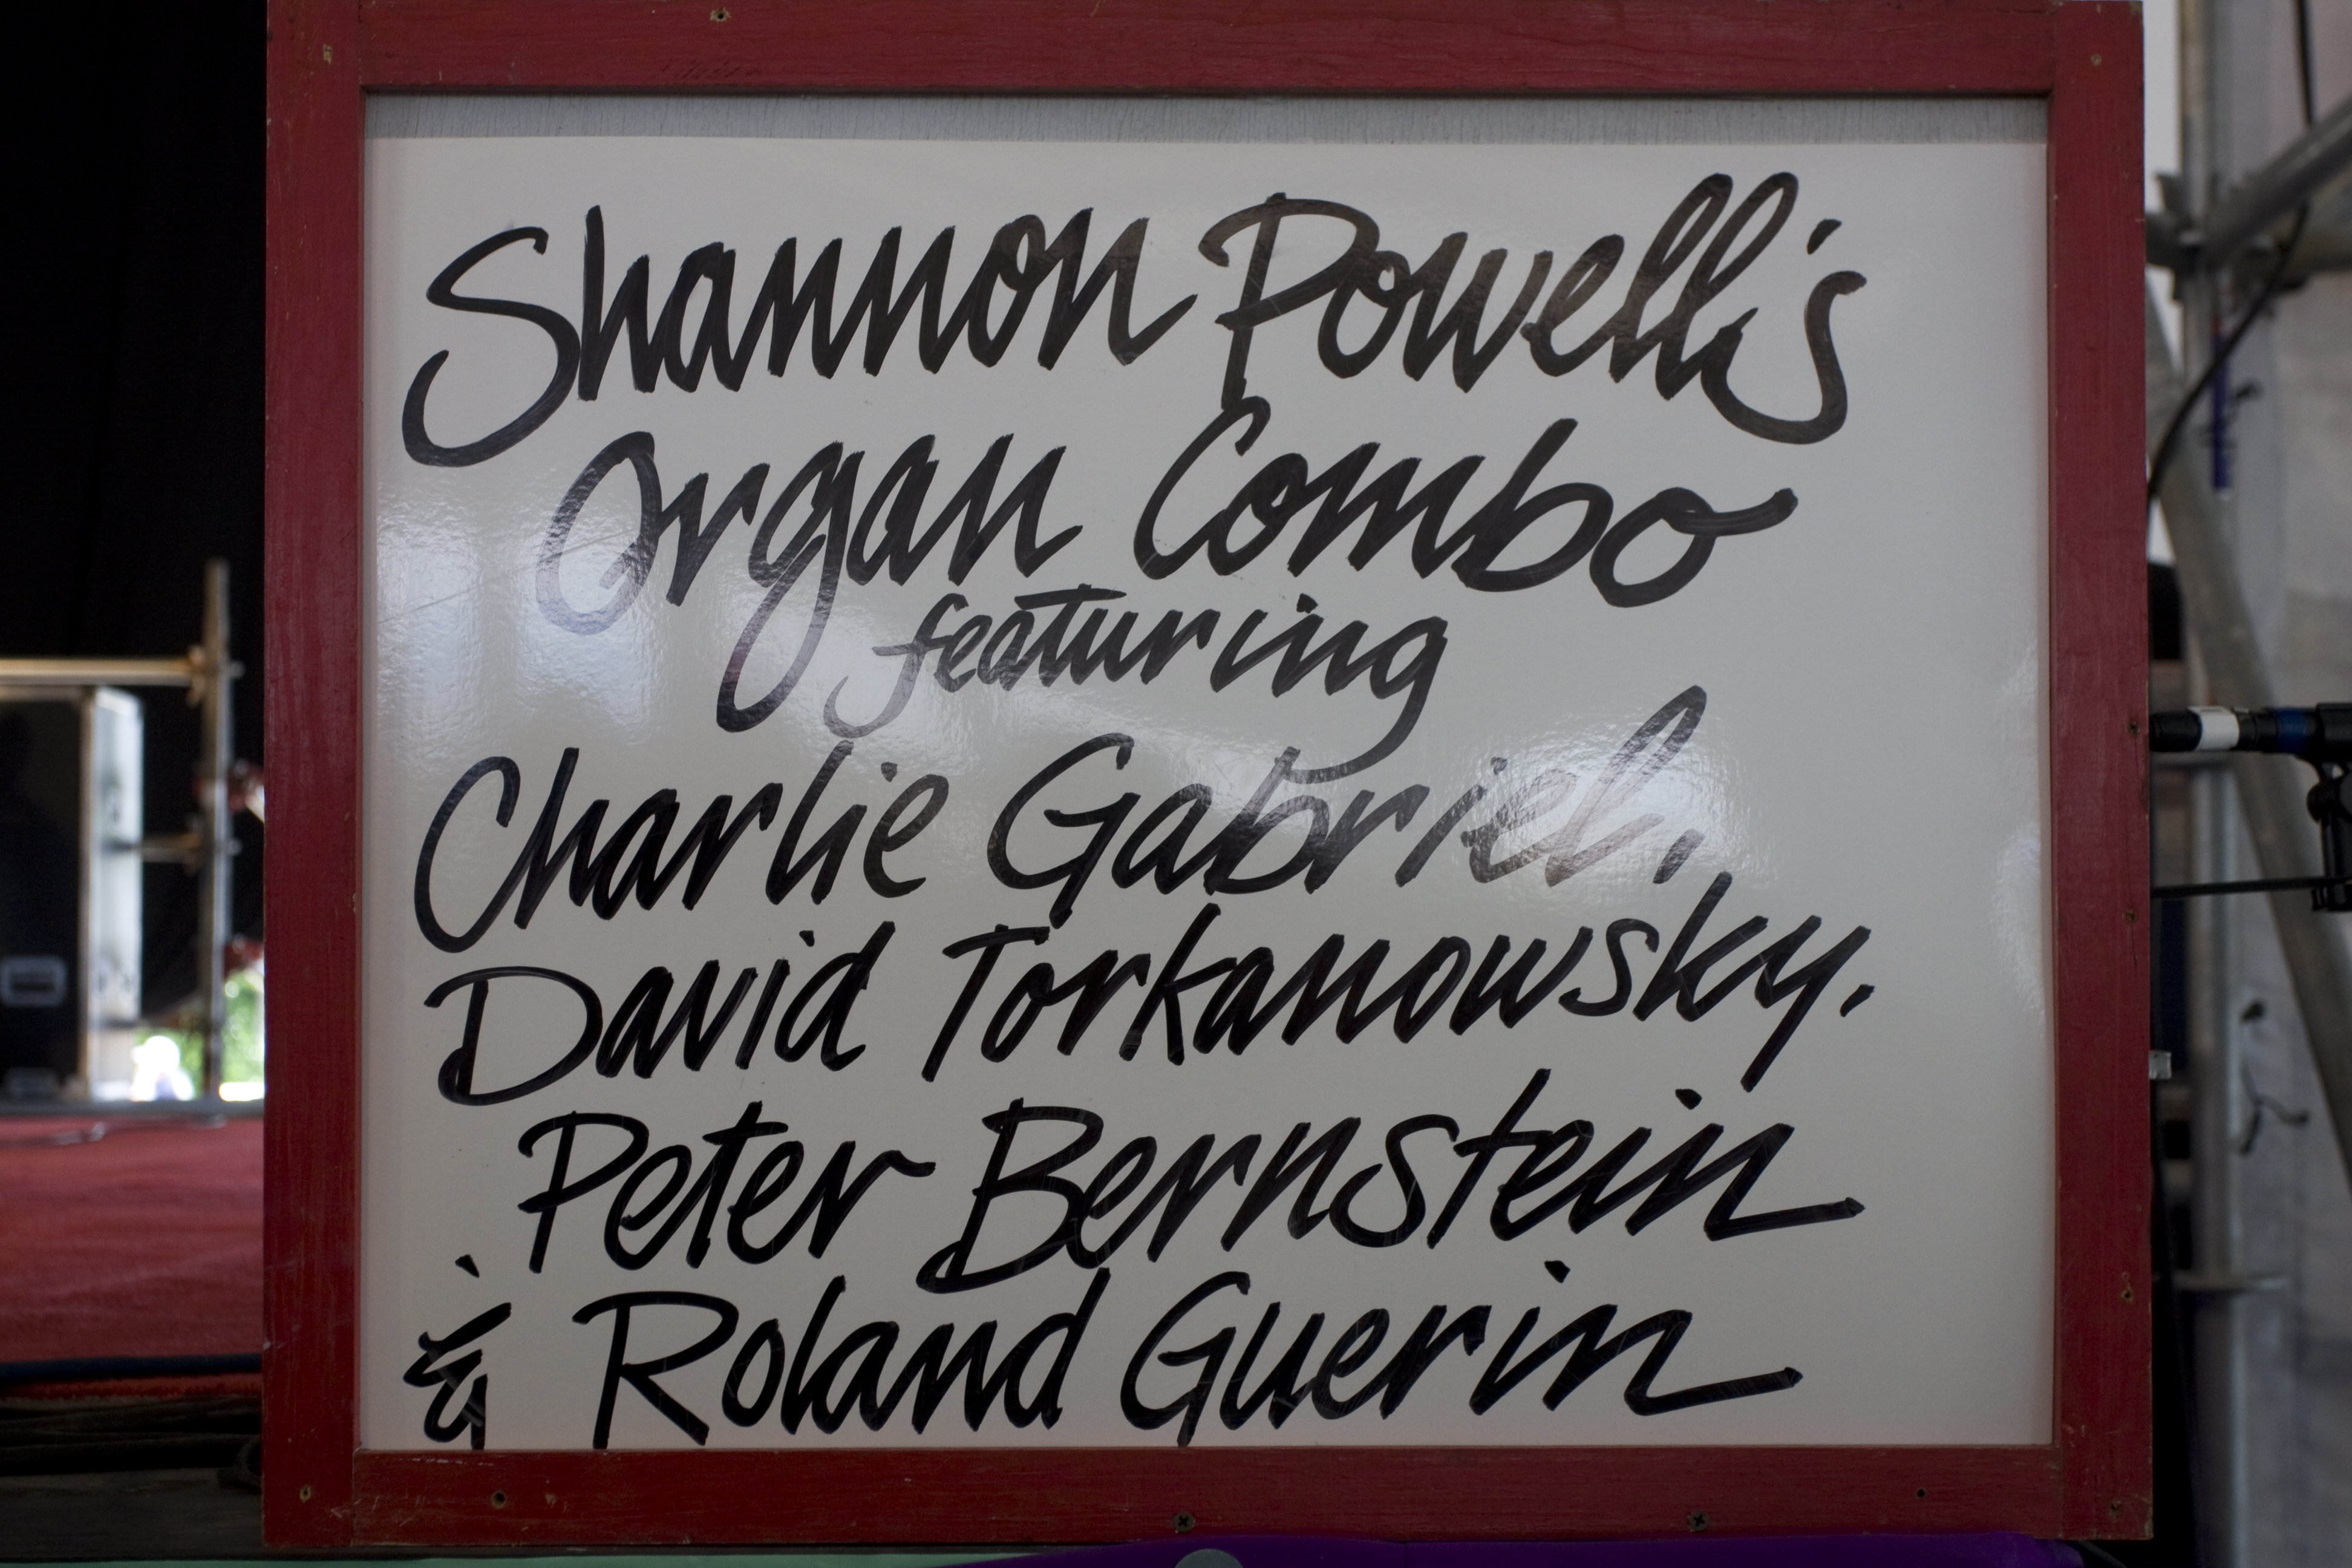 Shannon Powell's
Organ Combo
featuring
Charlie Gabriel,
David Torkanowsky,
Peter Bernstein
& Roland Guerin